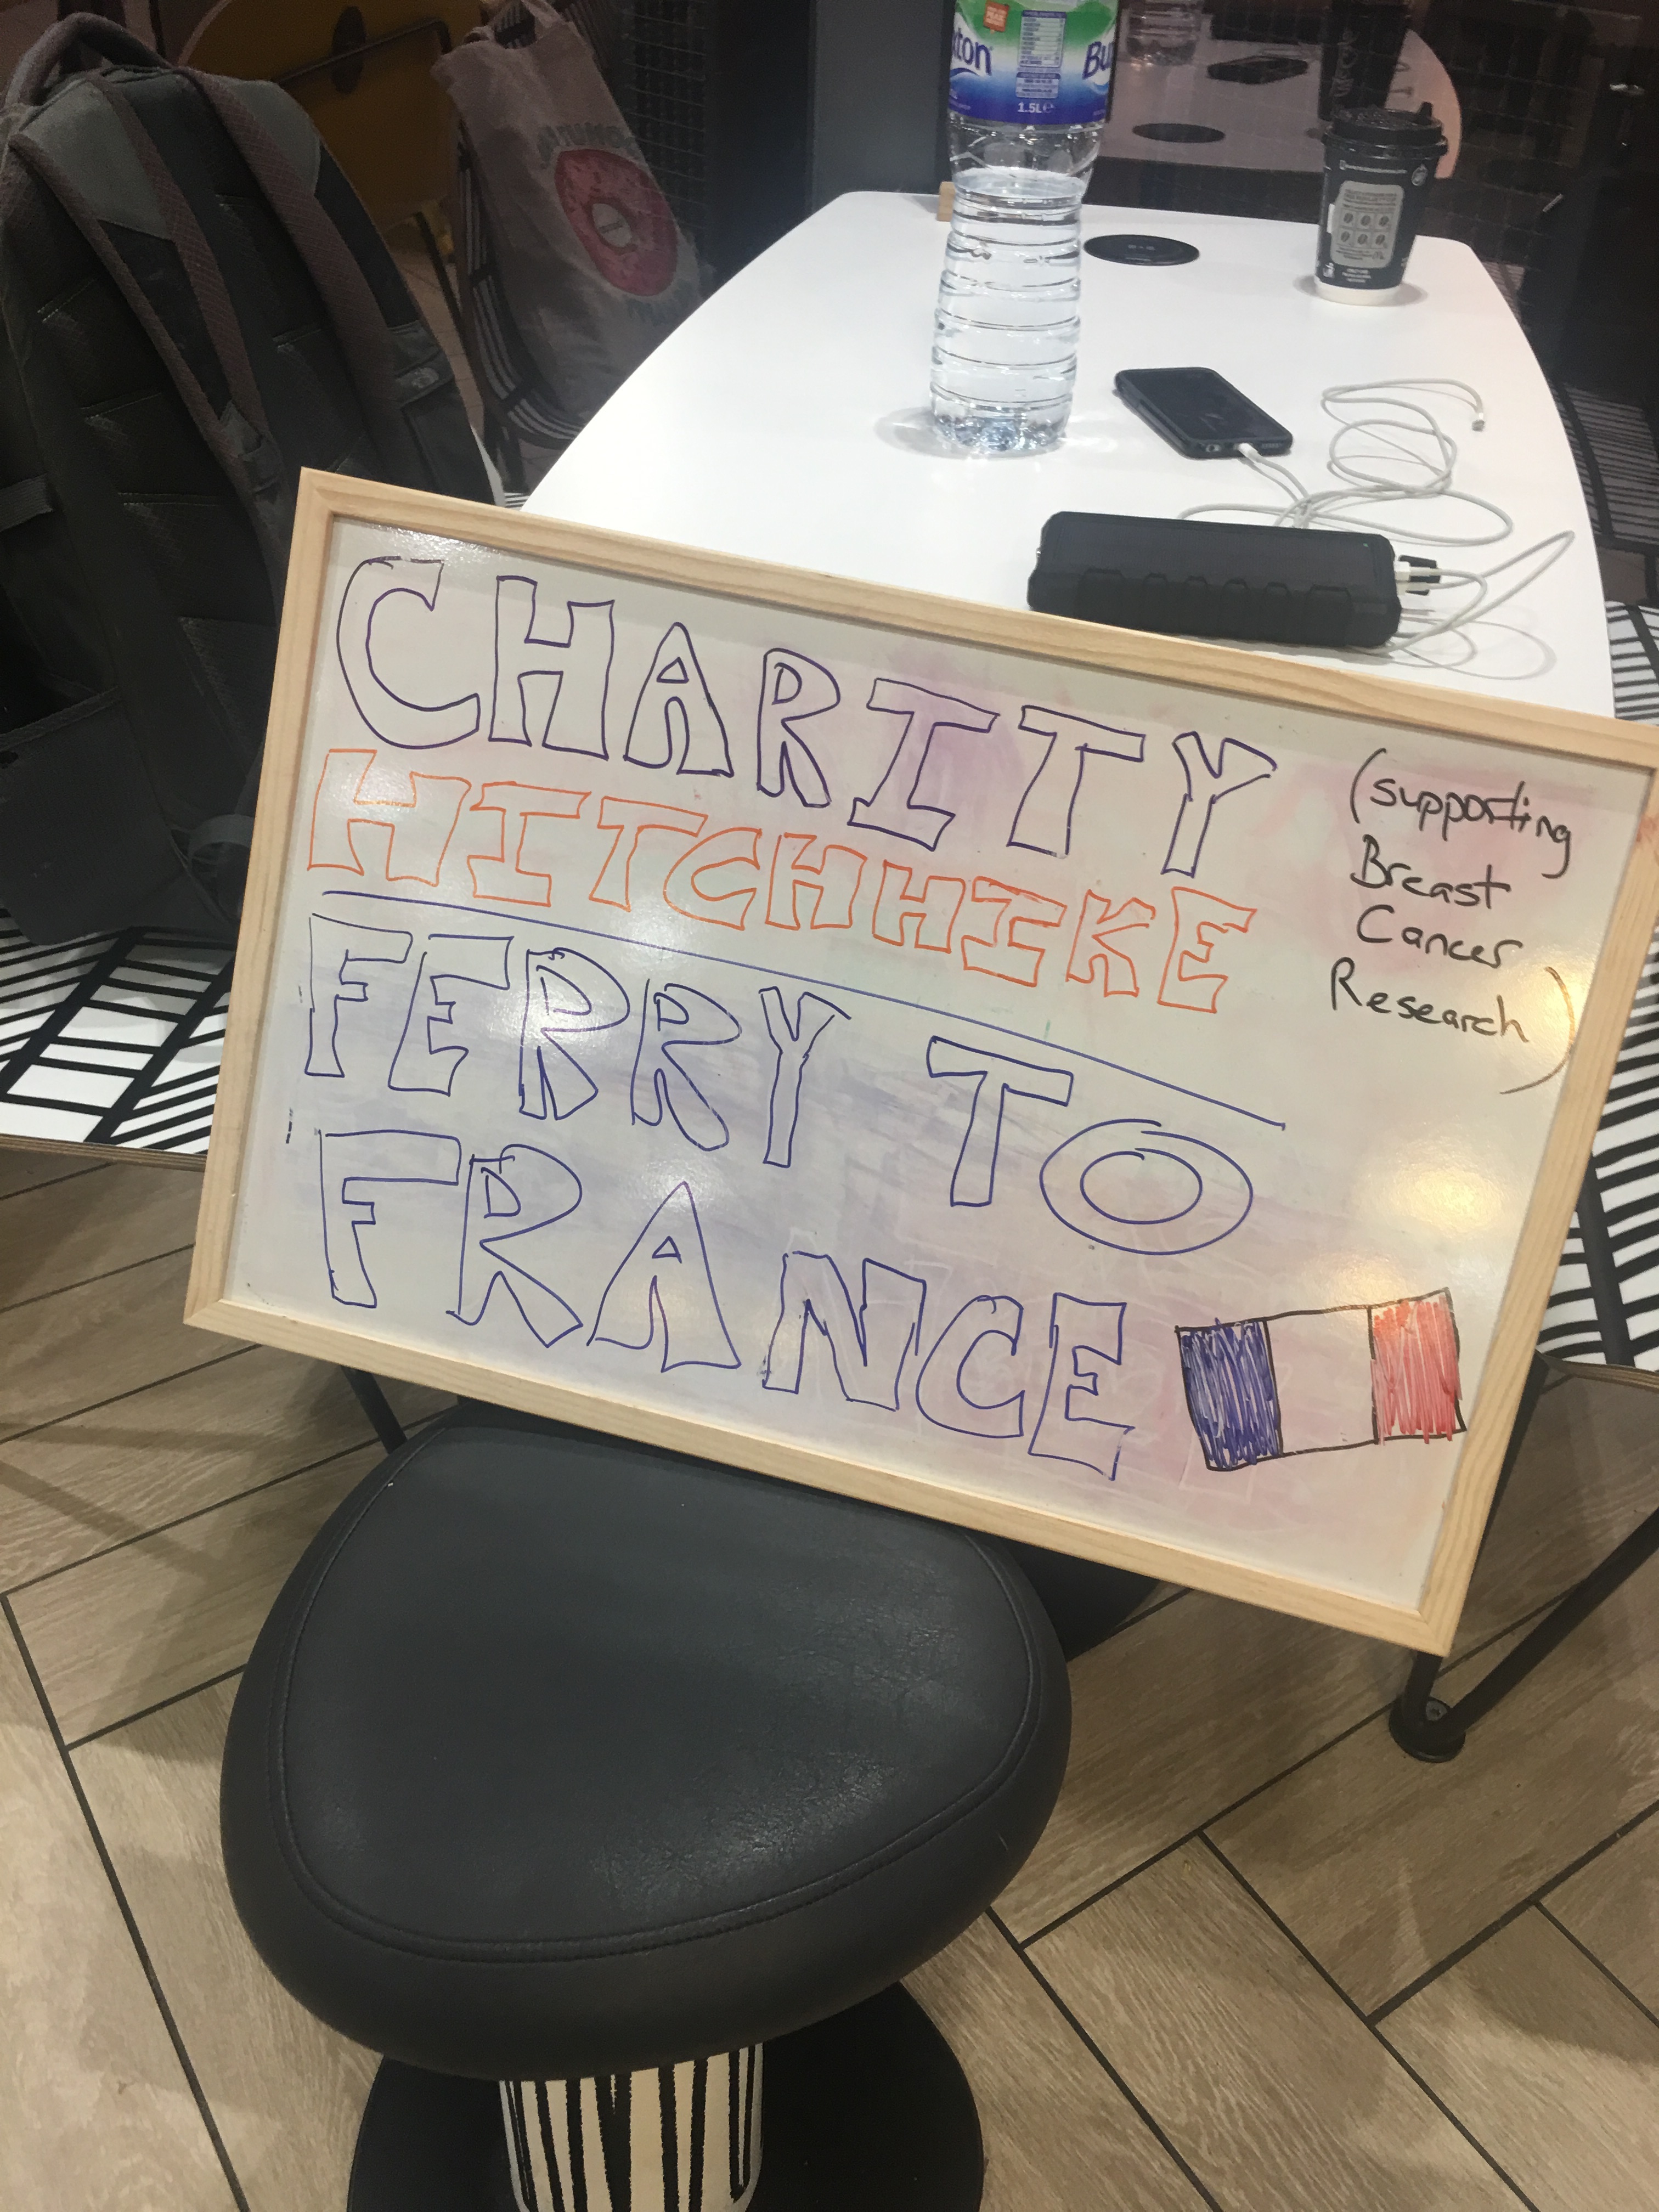 CHARITY
HITCHHIKE
FERRY TO
FRANCE
(supporting
Breast
Cancer
Research)
xton
Bu
1.5L